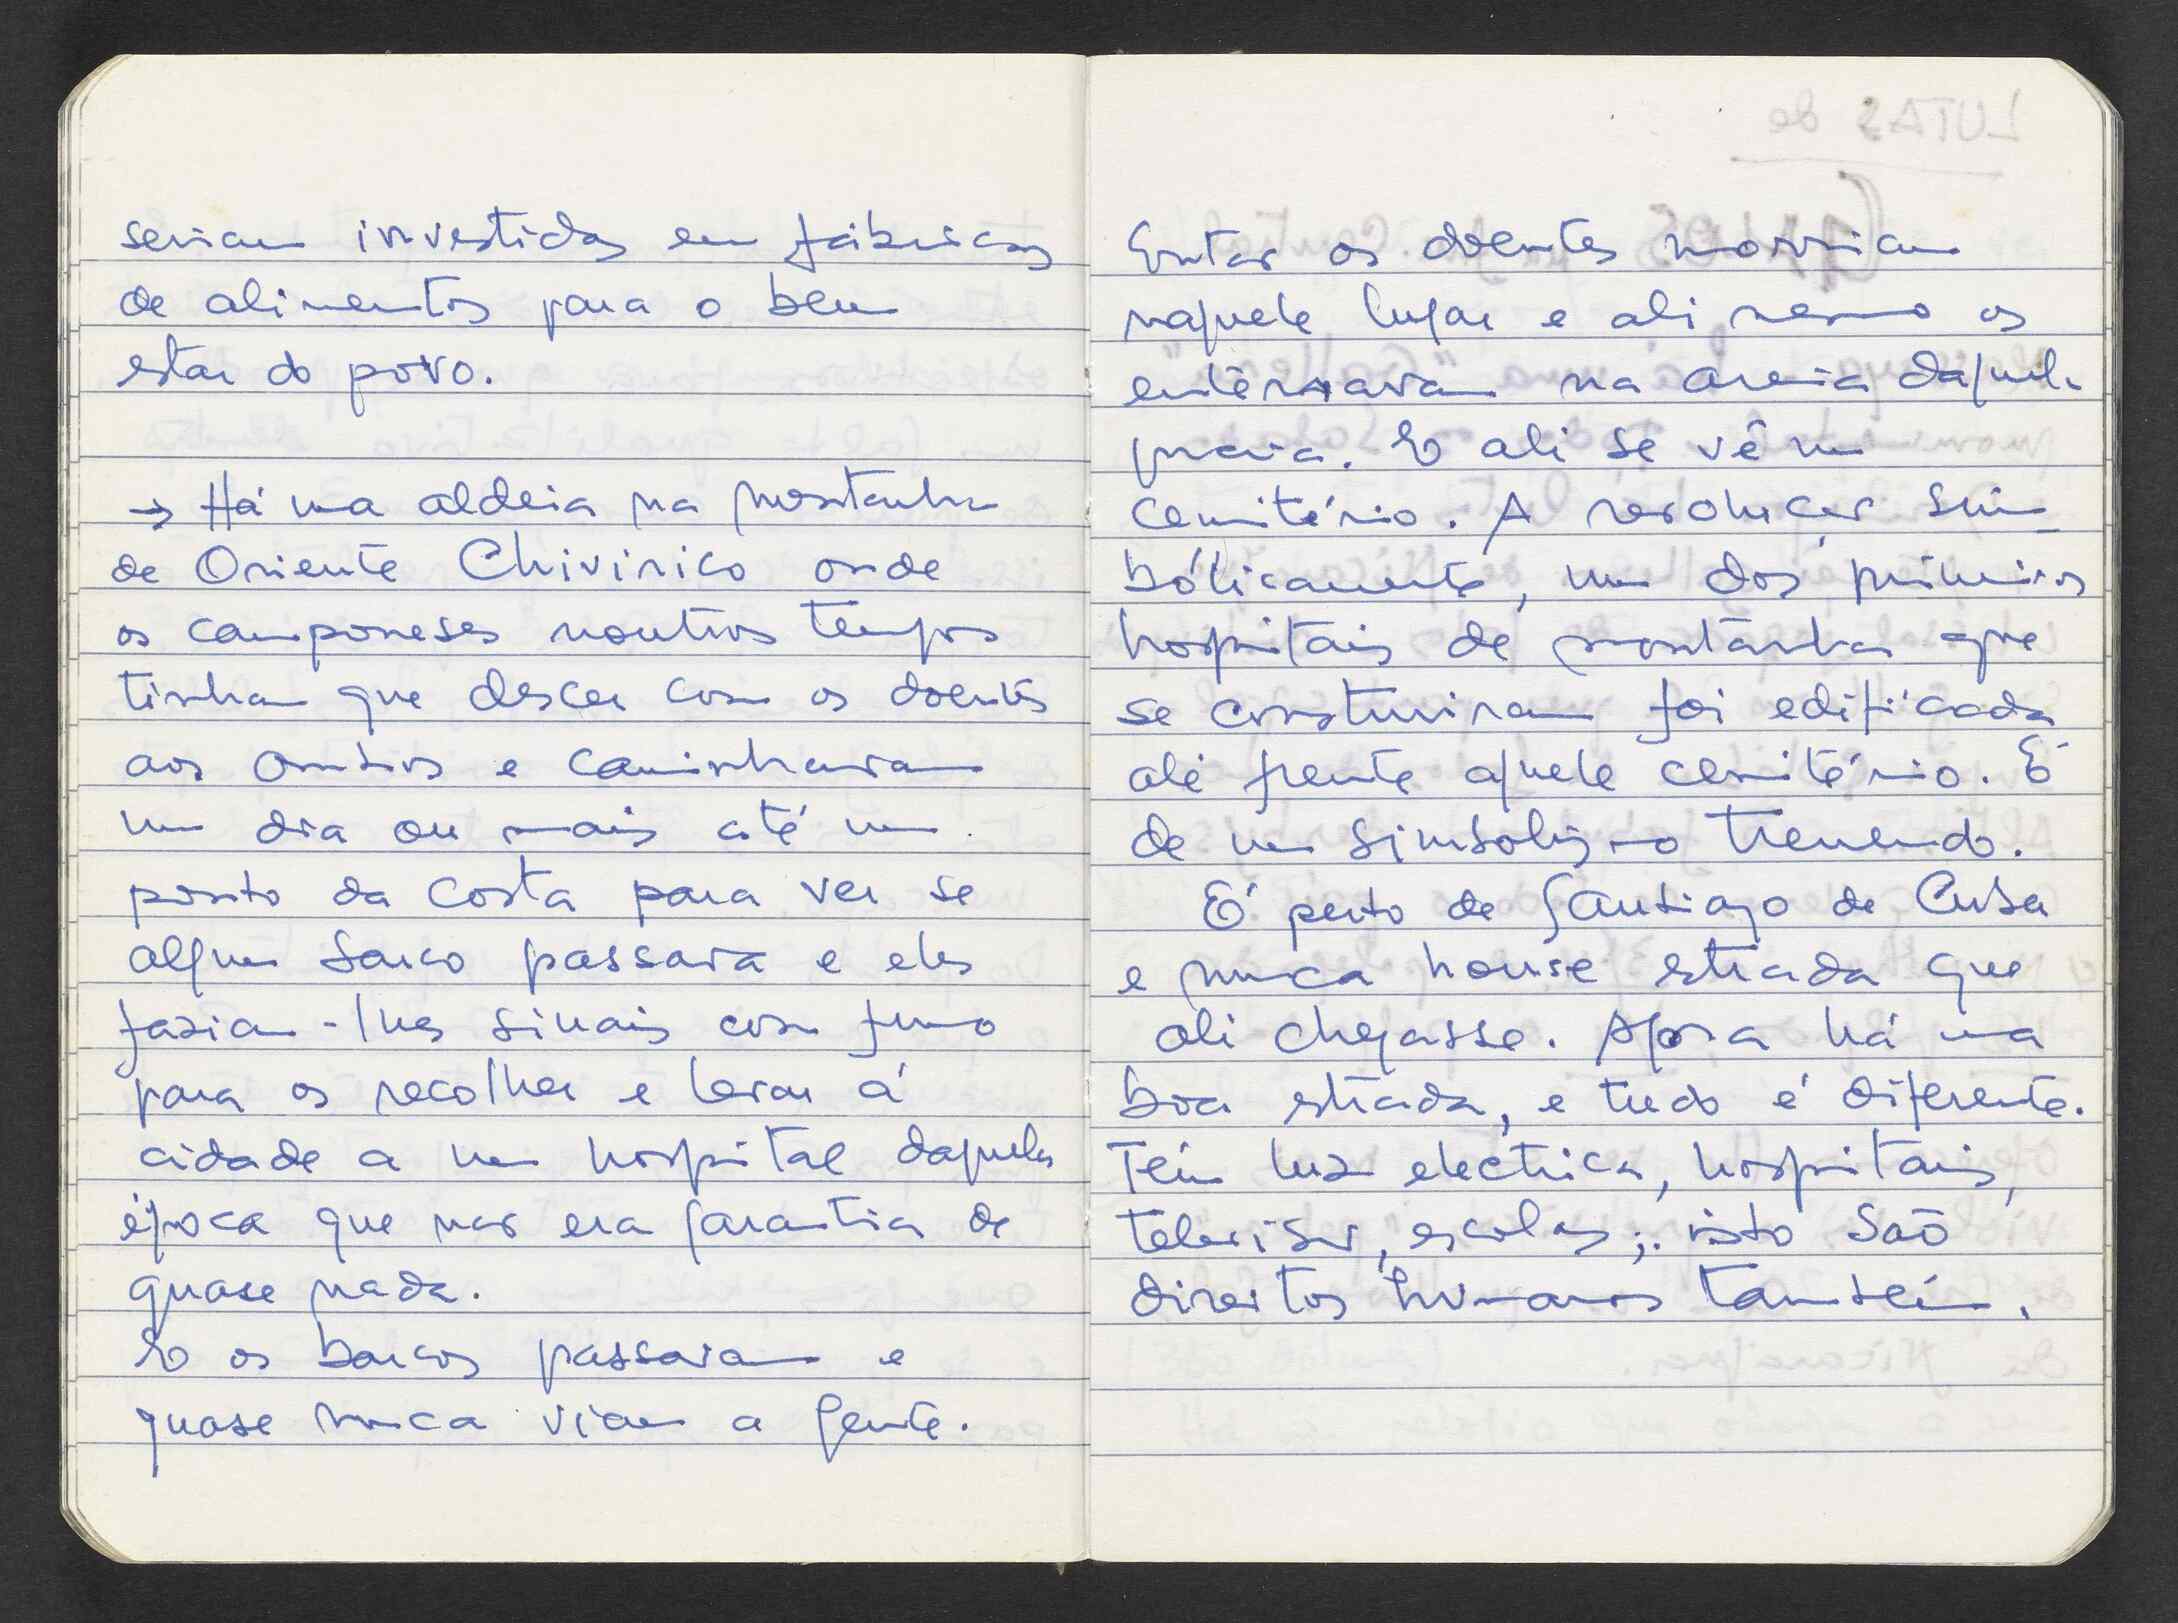 seriam investidos em fábricas
de alimentos para o bem
estar do povo.
→ Há uma aldeia na montanha
de Oriente Chivirico onde
os camponeses noutros tempos
tinham que descer com os doentes
aos ombros e caminhavam
um dia ou mais até um
ponto da costa para ver se
algum barco passava e eles
faziam-lhes sinais com fumo
para os recolher e levar á
cidade a um hospital daquela
época que não era garantia de
quase nada.
E os barcos passavam e
quase nunca viam a gente.
LUTAS de
Então os doentes morriam
naquele lugar e ali mesmo os
enterravam na areia daquela
praia. E ali se vê um
cemitério. A revolução sim
bólicamente, um dos primeiros
hospitais de montanha que
se construiram foi edificado
ali frente aquele cemitério. É
de um simbolismo tremendo.
É perto de Santiago de Cuba
e nunca houve estrada que
ali chegasse. Agora há uma
boa estrada, e tudo é diferente.
Têm luz electrica, hospitais,
televisão, escolas; isto saõ
direitos humanos também.